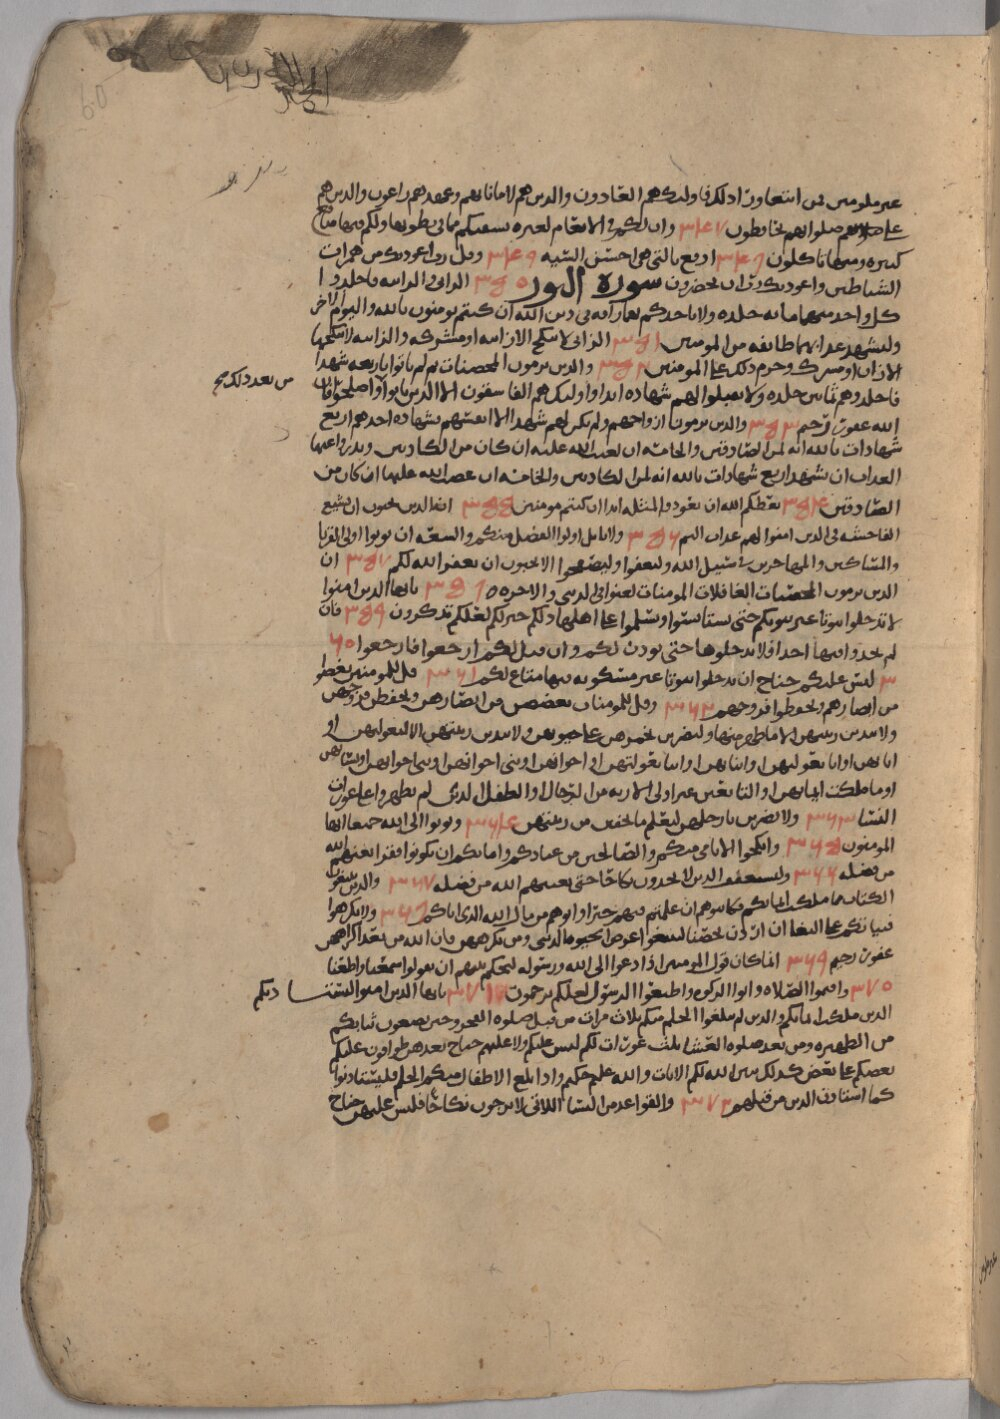 غير ملومين فمن ابتغا ورا ذلك فاوليك هم العادون والذين هم لاماناتهم وعهدهم راعون والذين هم
على صلواتهم يحافظون ٣٤٧ وان لكم في الانعام لعبرة نسقيكم مما في بطونها ولكم فيها منافع
كثيرة ومنها تاكلون ٣٤٨ ادفع بالتي هي احسن السيه ٣٤٩ وقل رب اعوذ بك من همزات
الشياطين واعوذ بك رب ان يحضرون سورة النور ٣٥٠ الزانية والزاني فاجلدوا
كل واحد منهما مايه جلده ولا تاخذكم بهما رافه في دين الله ان كنتم تومنون بالله واليوم الاخر
وليشهد عذابهما طايفه من المومنين ٣٥١ الزاني لا ينكح الا زانيه او مشركه والزانيه لا ينكحها
الا زان او مشرك وحرم ذلك على المومنين ٣٥٢ والذين يرمون المحصنات ثم لم ياتوا باربعه شهدا
فاجلدوهم ثمانين جلده ولا تقبلوا لهم شهاده ابدا واوليك هم الفاسقون الا الذين تابوا واصلحوا فان
من بعد ذلك صح
الله غفور رحيم ٣٥٣ والذين يرمون ازواجهم ولم يكن لهم شهدا الا انفسهم فشهاده احدهم اربع
شهادات بالله انه لمن الصادقين والخامسه ان لعنت الله عليه ان كان من الكاذبين ويدروا عنها
العذاب ان تشهد اربع شهادات بالله انه لمن الكاذبين والخامسه ان غضب الله عليها ان كان من
الصادقين ٣٥٤ يعظكم الله ان تعودوا لمثله ابدا ان كنتم مومنين ٣٥٥ ان الذين يحبون ان تشيع
الفاحشه في الذين امنوا لهم عذاب اليم ٣٥٦ ولا ياتل اولوا الفضل منكم والسعه ان يوتوا اولي القربا
والمساكين والمهاجرين في سبيل الله وليعفوا وليصفحوا الا تحبون ان يغفر الله لكم ٣٥٧ ان
الذين يرمون المحصنات الغافلات المومنات لعنوا في الدنيا والاخره ٣٥٨ يا ايها الذين امنوا
لا تدخلوا بيوتا غير بيوتكم حتى تستانسوا وتسلموا على اهلها ذلكم خير لكم لعلكم تذكرون ٣٥٩ فان
لم تجدوا فيها احدا فلا تدخلوها حتى يوذن لكم وان قيل لكم ارجعوا فارجعوا ٦٠
٣ ليس عليكم جناح ان تدخلوا بيوتا غير مسكونه فيها متاع لكم ٣٦١ قل للمومنين يغضوا
من ابصارهم ويحفظوا فروجهم ٣٦٢ وقل للمومنات يغضضن من ابصارهن ويحفظن فروجهن
ولا يبدين زينتهن الا ما ظهر منها وليضربن بخمرهن على جيوبهن ولا يبدين زينتهن الا لبعولتهن او
ابايهن او ابا بعولتهن او ابنايهن او ابنا بعولتهن او اخوانهن او بني اخوانهن او بني اخواتهن او نسايهن
او ما ملكت ايمانهن او التابعين غير اولي الاربه من الرجال او الطفل الذين لم يظهروا على عورات
النسا ٣٦٣ ولا يضربن بارجلهن ليعلم ما يخفين من زينتهن ٣٦٤ وتوبوا الى الله جميعا ايها
المومنون ٣٦٥ وانكحوا الايامى منكم والصالحين من عبادكم وامايكم ان يكونوا فقرا يغنهم الله
من فضله ٣٦٦ وليستعفف الذين لا يجدون نكاحا حتى يغنيهم الله من فضله ٣٦٧ والذين يبتغون
الكتاب مما ملكت ايمانكم فكاتبوهم ان علمتم فيهم خيرا واتوهم من مال الله الذي اتاكم ٣٦٨ ولا تكرهوا
فتياتكم على البغا ان اردن تحصنا لتبتغوا عرض الحيوه الدنيا ومن يكرههن فان الله من بعد اكراههن
غفور رحيم ٣٦٩ انما كان قول المومنين اذا دعوا الى الله ورسوله ليحكم بينهم ان يقولوا سمعنا واطعنا
٣٧٠ واقيموا الصلاه واتوا الزكوه واطيعوا الرسول لعلكم ترحمون ٣٧١ يا ايها الذين امنوا ليستاذنكم
الذين ملكت ايمانكم والذين لم يبلغوا الحلم منكم ثلاث مرات من قبل صلوه الفجر وحين تضعون ثيابكم
من الظهيره ومن بعد صلوه العشا ثلث عورات لكم ليس عليكم ولا عليهم جناح بعدهن طوافون عليكم
بعضكم على بعض كذلك يبين الله لكم الايات والله عليم حكيم واذا بلغ الاطفال منكم الحلم فليستاذنوا
كما استاذن الذين من قبلهم ٣٧٢ والقواعد من النسا اللاتي لا يرجون نكاحا فليس عليهن جناح